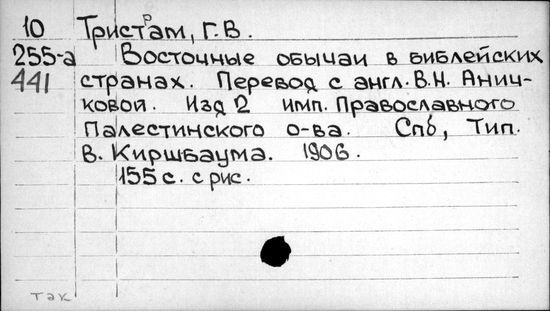 10 Тристрам, Г. В.
255-а Восточные обычаи в библейских
441 странах. Перевод с англ. В. Н. Анич-
ковой. Изд 2 имп. Православного
Палестинского о-ва. Спб, Тип.
В. Киршбаума. 1906.
155 с. с рис.
так